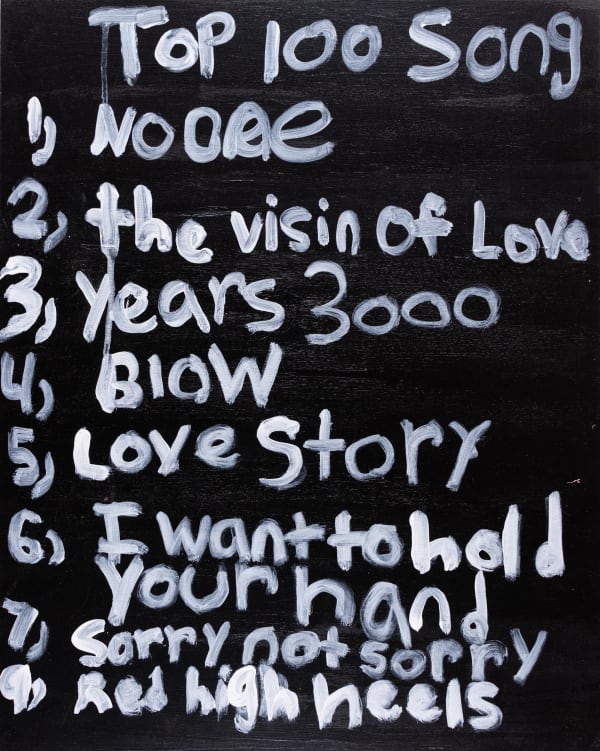 TOP 100 Song
1, NO ONe
2, the visin of Love
3, years 3000
4, BlOW
5, Love Story
6, I want to hold
Your hand
7, Sorry not sorry
9, Red high heels